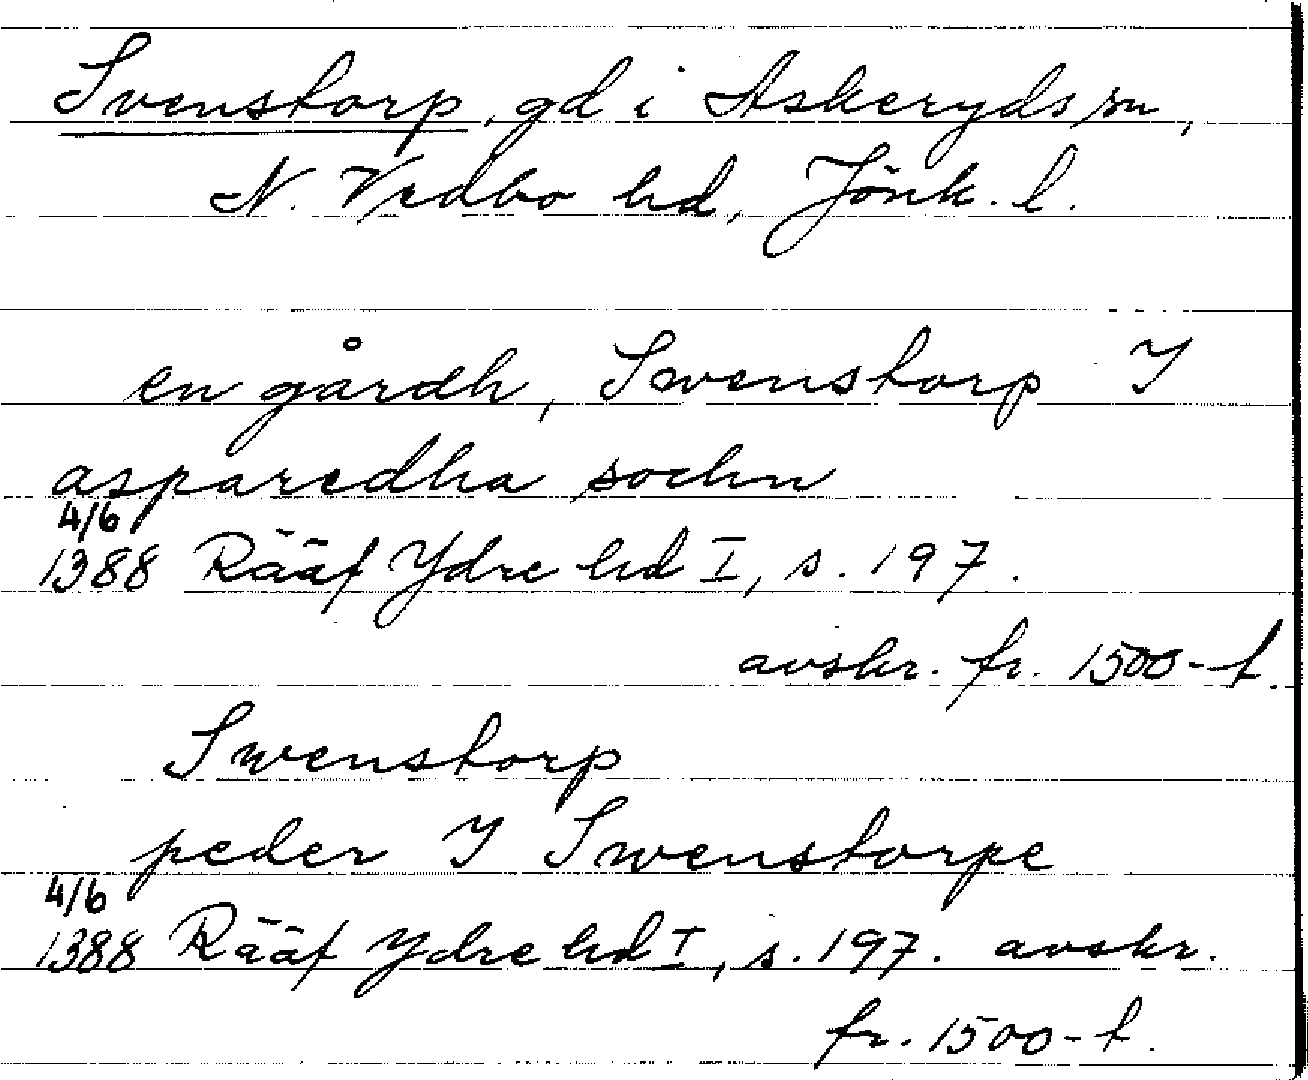 Svenstorp, gd i Askeryds sn,
N. Vedbo hd, Jönk. l.
en gårdh, Swenstorp I
asparedha sochn
4/6
1388 Rääf Ydre hd I, s. 197.
avskr. fr. 1500-t.
Swenstorp
peder I Swenstorpe
4/6
1388 Rääf Ydre hd I, s. 197. avskr.
fr. 1500-t.